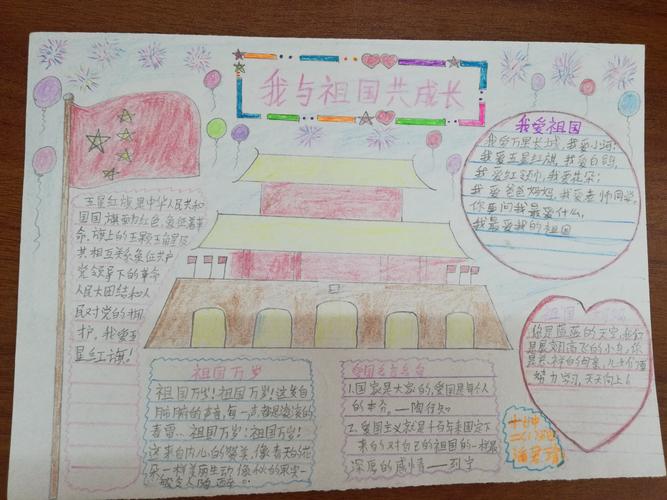 我与祖国共成长
我爱祖国
我爱万里长城,我爱小河!
我爱五星红旗,我爱白鸽,
我爱红领巾,我爱花朵;
我爱爸爸妈妈,我爱老师同学。
你要问我最爱什么,
我最爱我的祖国
五星红旗是中华人民共和
国国旗,旗面为红色,象征着革
命,旗上的五颗五角星及
其相互关系象征共产
党领导下的革命
人民大团结和人
民对党的拥
护,我爱五
星红旗!
祖国
你是蔚蓝的天空,我们
是展翅高飞的小鸟,你
是慈祥的母亲,儿女们
努力学习,天天向上!
祖国万岁
祖国万岁!祖国万岁!这发自
肺腑的声音,每一声都是滚滚的
春雷。祖国万岁!祖国万岁!
这来自内心的赞美,像春天的花
朵一样美丽生动,像秋的果实一
爱国名言名句
1.国家是大家的,爱国是每个人
的本分。——陶行知
2.爱国主义就是千百年来固定下
来的对自己的祖国的一种最
深厚的感情——列宁